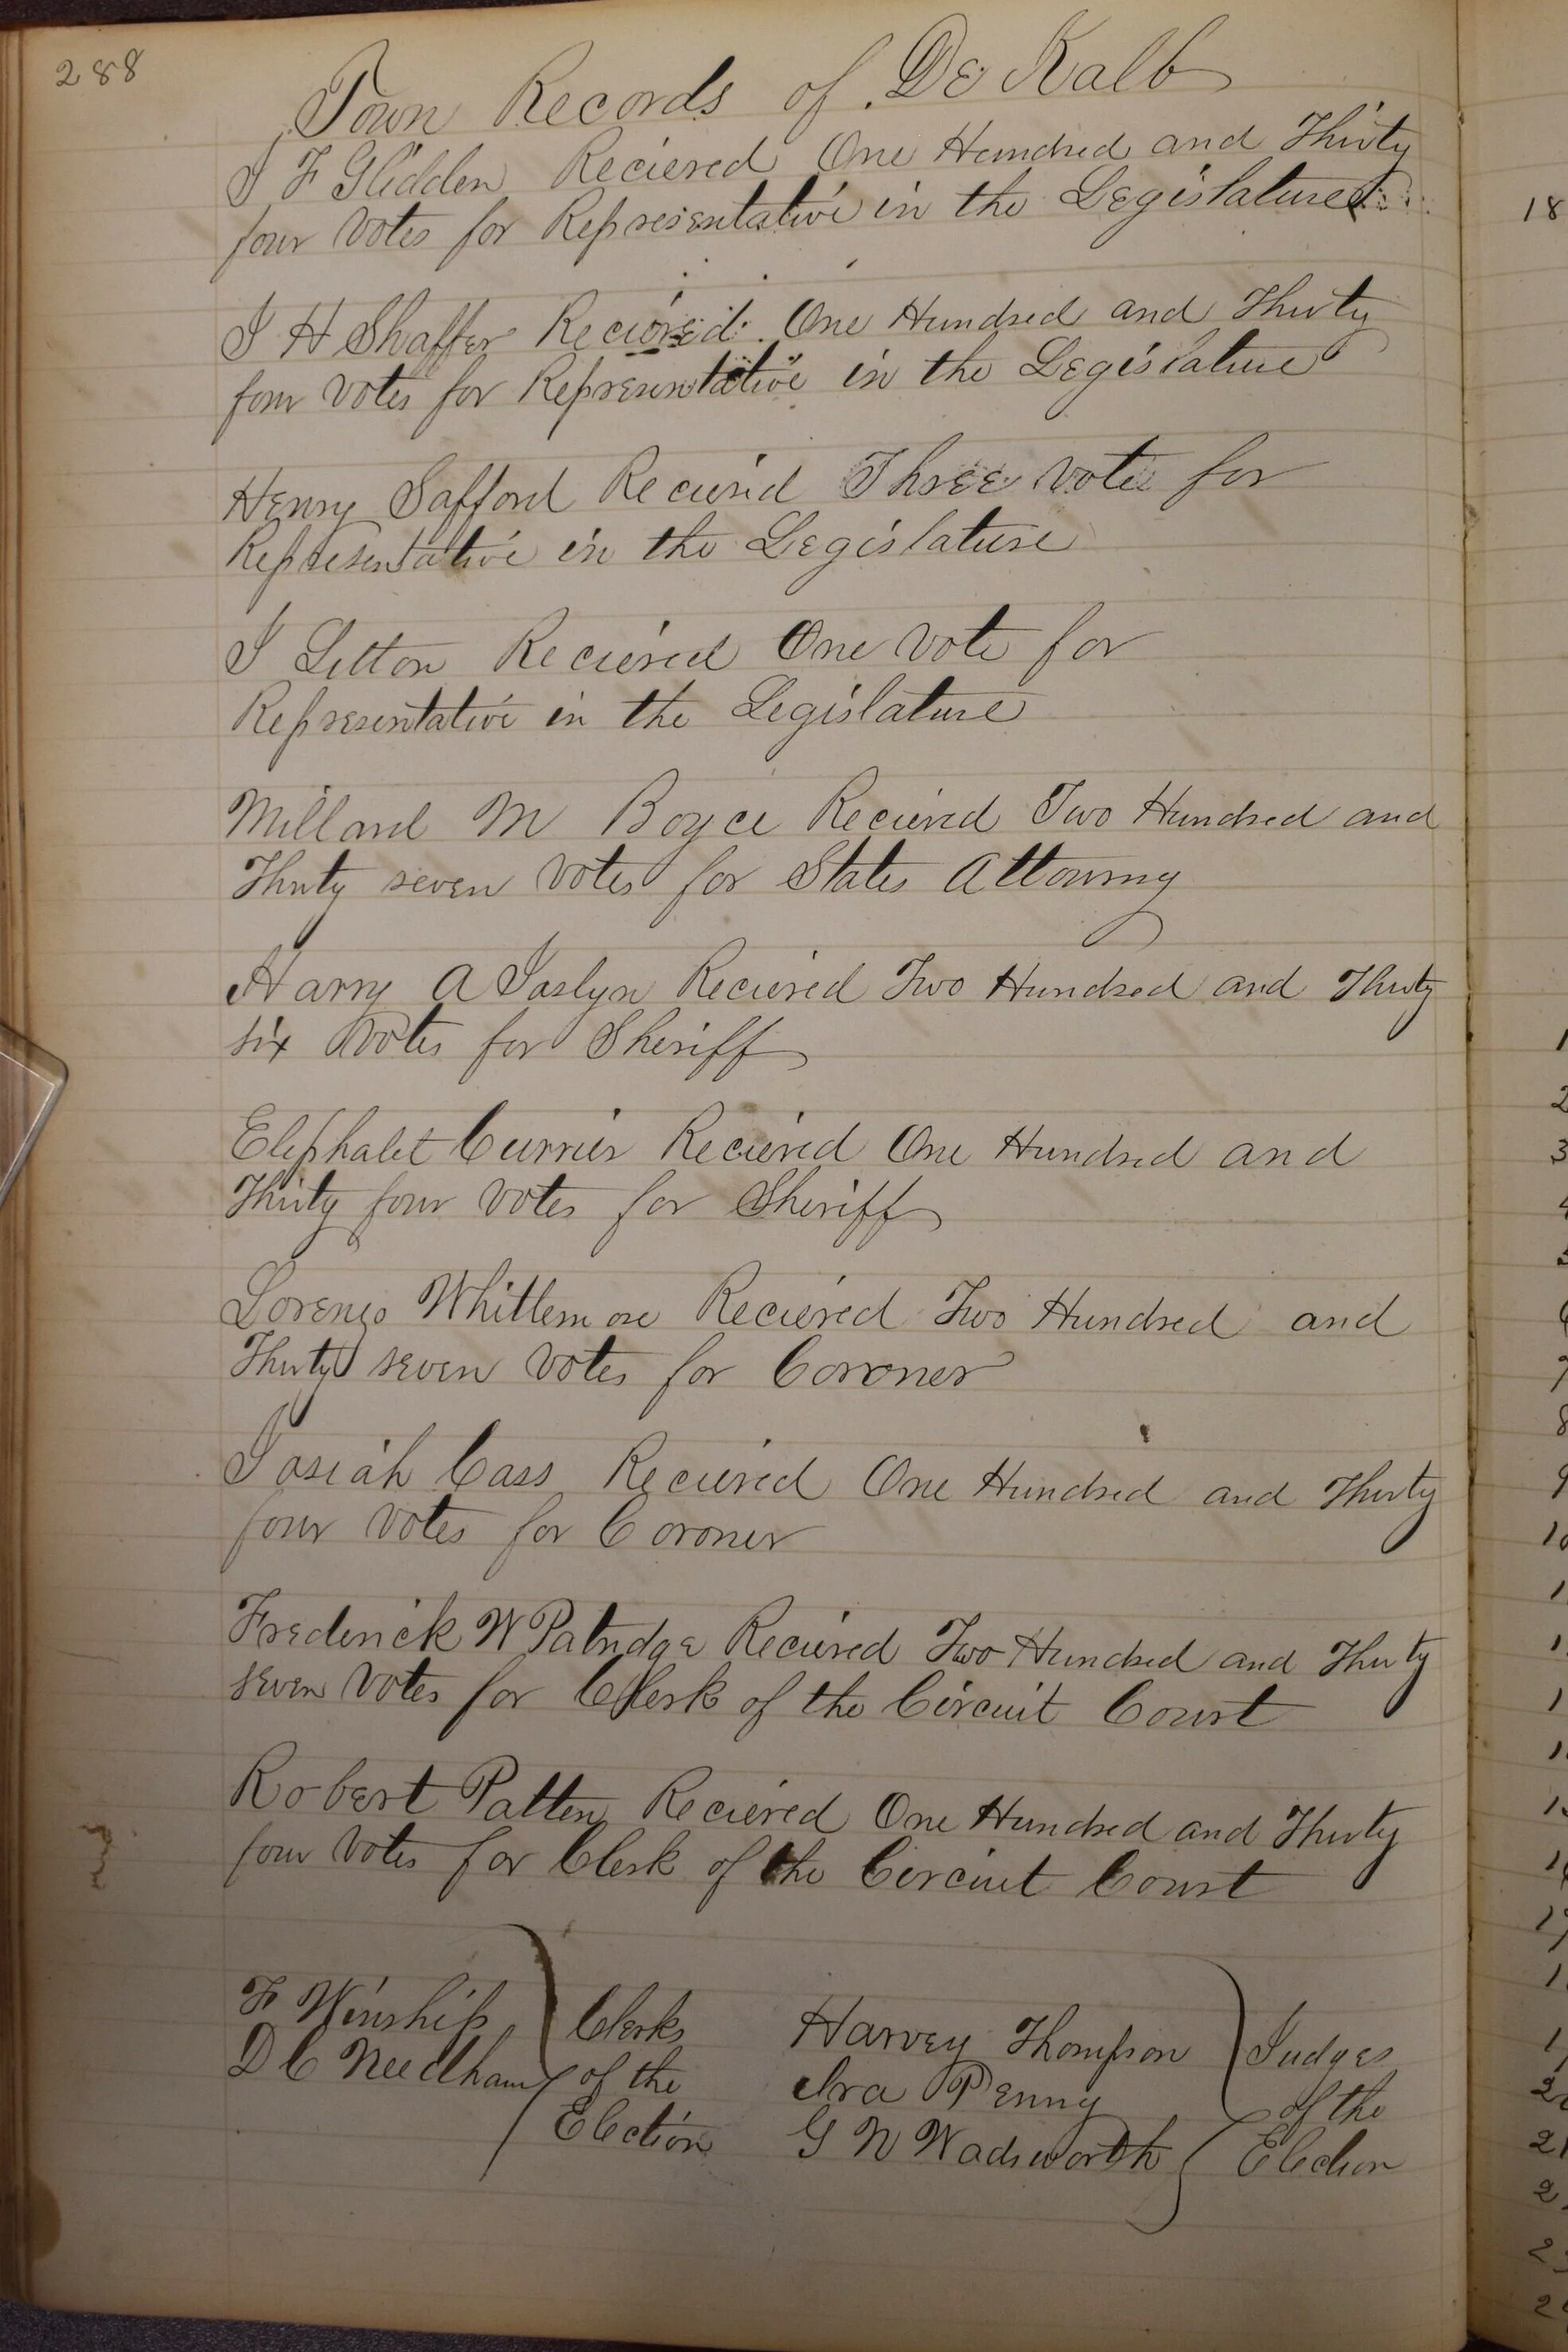 288
Town Records of De Kalb
J F Glidden Recieved One Hundred and Thirty
four Votes for Representative in the Legislature
J H Shaffer Recieved One Hundred and Thirty
four Votes for Representative in the Legislature
Henry Safford Recieved Three Vote for
Representative in the Legislature
J Letton Recieved One Vote for
Representative in the Legislature
Millard M Boyce Recieved Two Hundred and
Thirty seven Votes for States Attourny
Harry A Joslyn Recieved Two Hundred and Thirty
six Votes for Sheriff
Eliphalet Currier Recieved One Hundred and
Thirty four Votes for Sheriff
Lorenzo Whittemore Recieved Two Hundred and
Thirty seven Votes for Corroner
Josiah Cass Recieved One Hundred and Thirty
four Votes for Coroner
Frederick W Patridge Recieved Two Hundred and Thirty
seven Votes for Clerk of the Circuit Court
Robert Patten Recieved One Hundred and Thirty
four Votes for Clerk of the Circuit Court
F Winship
D C Needham
Clerks
of the
Election
Harvey Thompson
Ira Penny
G N Wadsworth
Judges
of the
Election
18
1
2
3
4
5
6
7
8
9
10